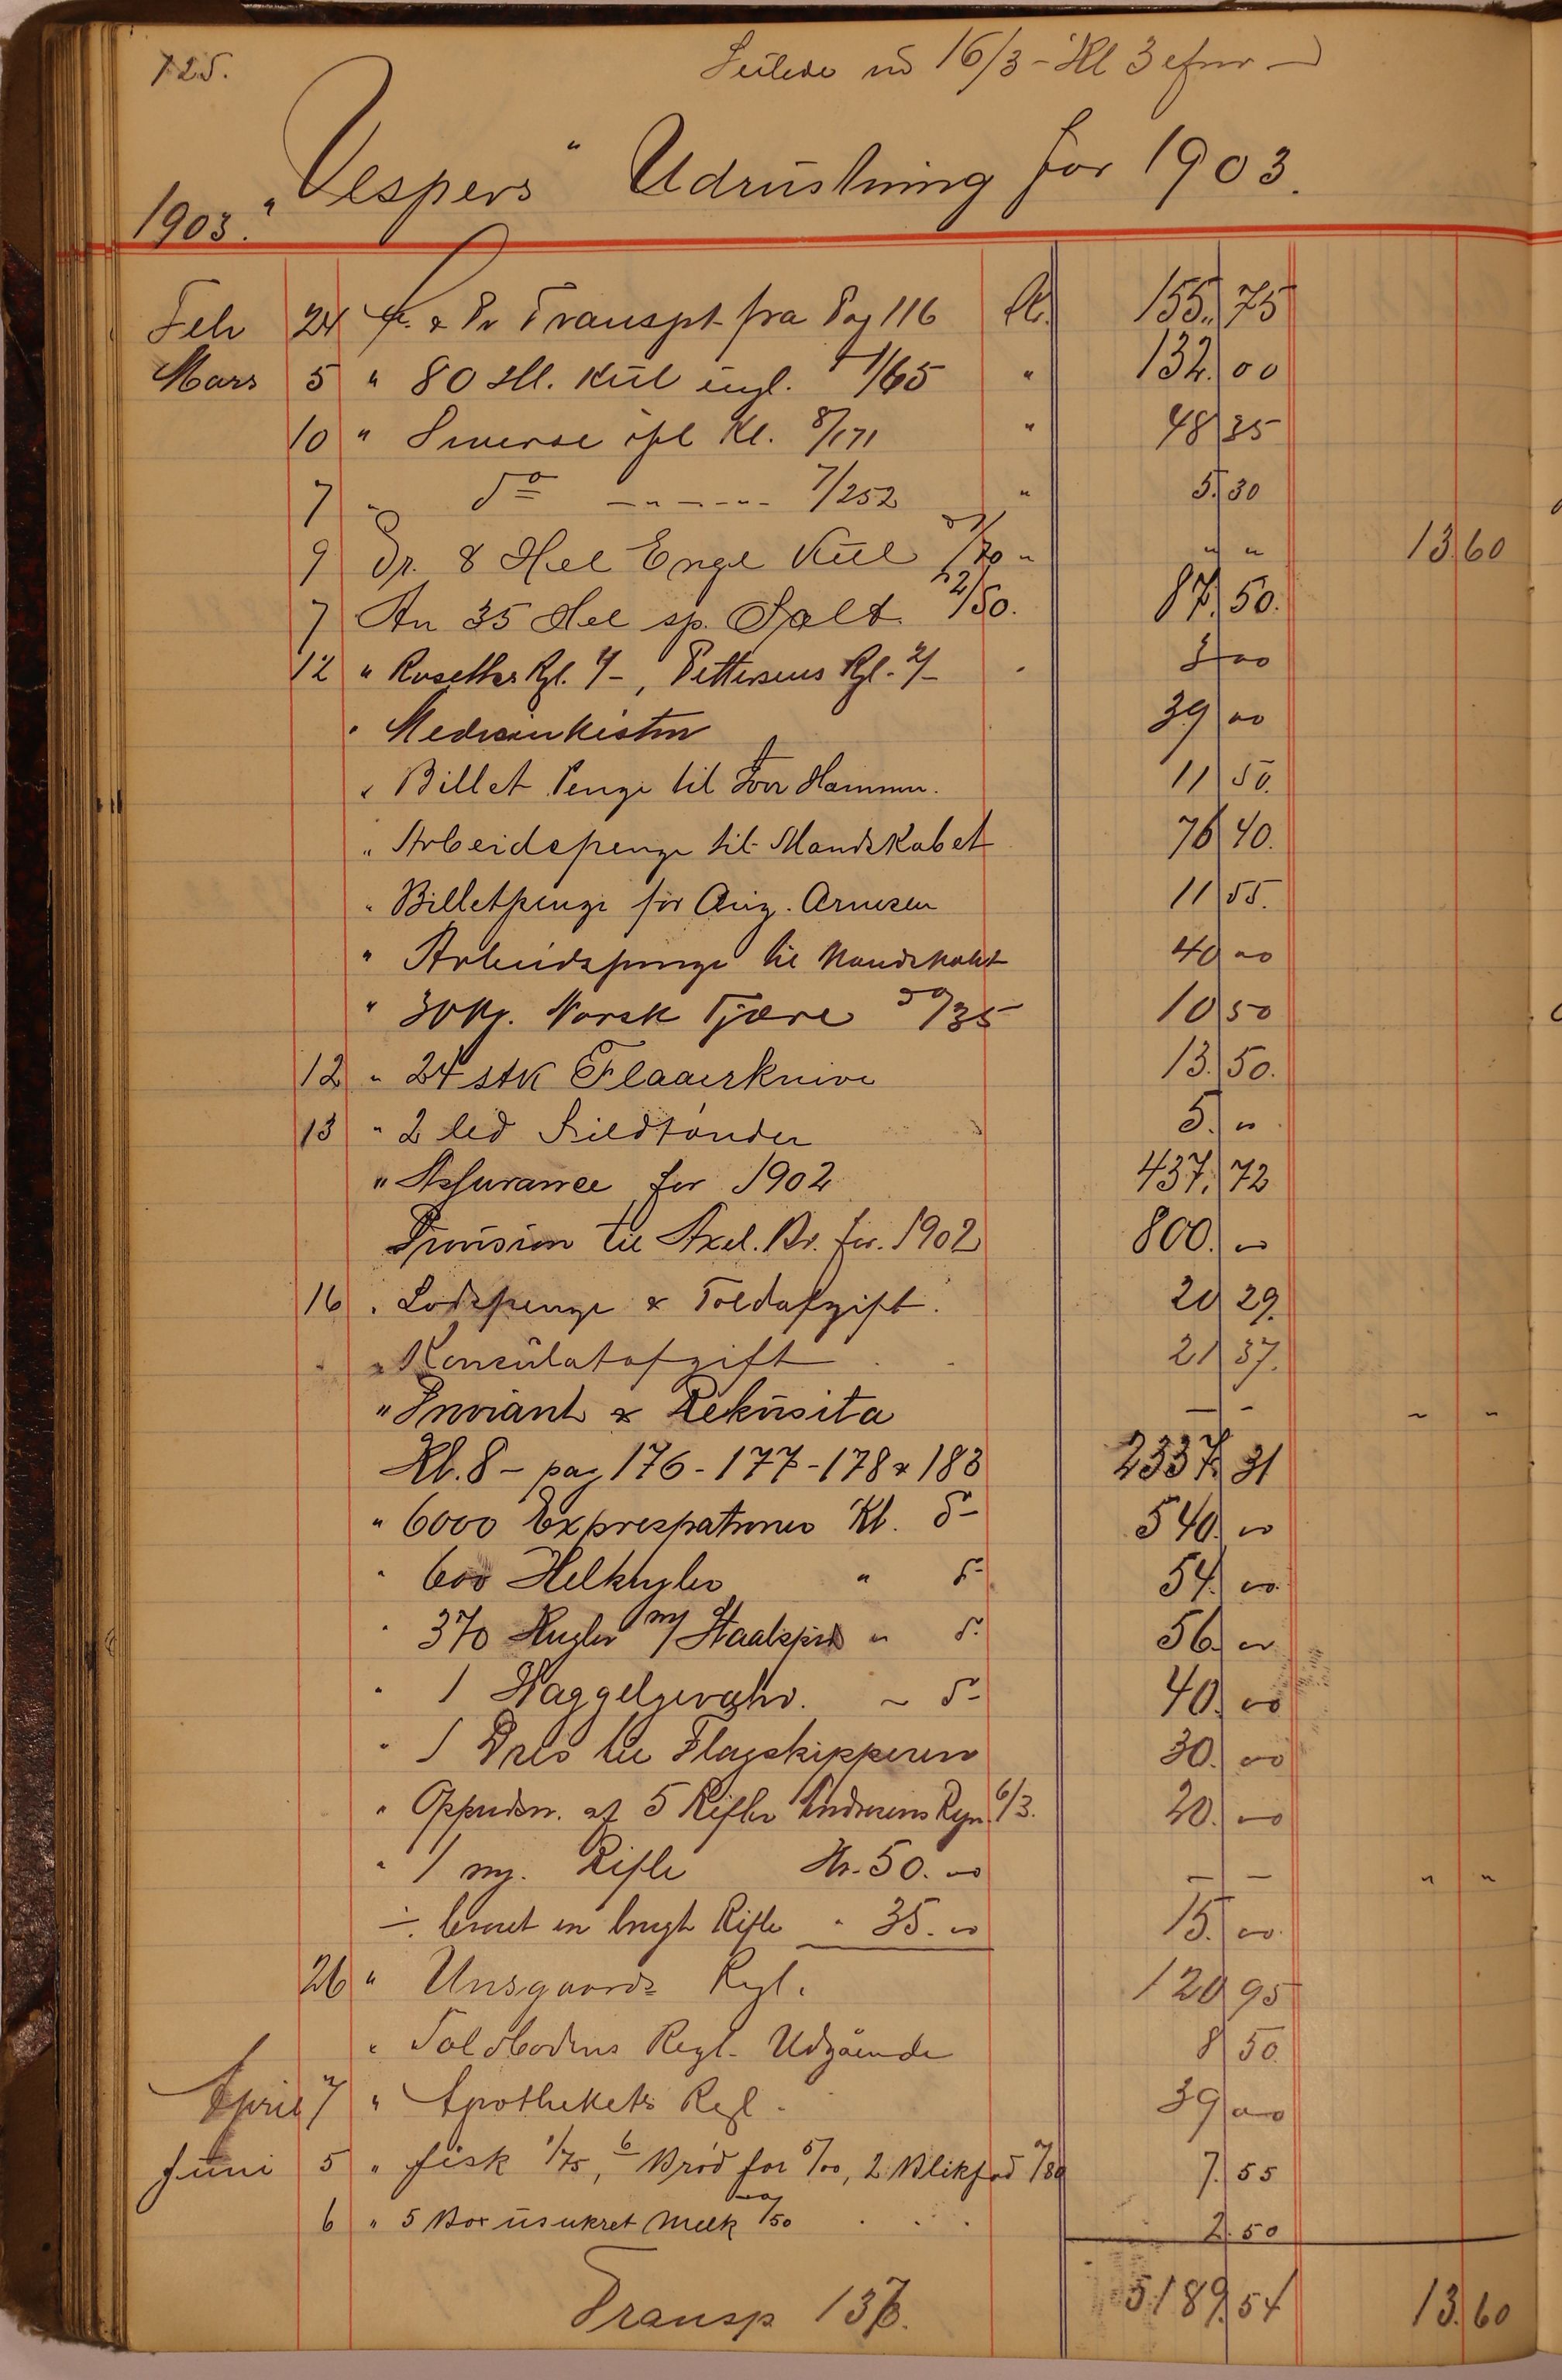 125.
Seilede ud 16/3 - Kl 3 efm
"Vespers" Udrustning for 1903.
1903.
Feb 24 & Pr Transpt fra Pag 116 Kr. 155. 75
Mars 5 " 80 Hl. Kul engl. 1/65 " 132. 00
10 " Smerse ifl Kl. 8/171 " 48 35
7 " do - " - " - 7/252 " 5. 30
9 Pr. 8 Hel Engl Kul 1/70 " " " 13 60
7 An 35 Hel sp. Salt. 2/50. 87. 50.
12 " Roseths Rgl. 1/-, Pettersens Rgl. 2/- " 3 00
" Medicinkisten 39 00
" Billet Penge til Hammer. 11 50.
" Arbeidspenge til Mandskabet 76 40.
" Billetpenge for Aug. Arnesen 11 55.
" Arbeidspenge til Mandskabet 40 00
" 30 Kg. Norsk Tjære 35 10 50
12 " 24 stk Flaaerknive 13. 50.
13 " 2 led Sildtønder 5. "
" Assurance for 1902 437. 72
Provision til Axel. Br. for. 1902 800. 00
16 " Lodspenge & Toldafgift. 20 29.
" Konsulatafgift 21 37.
" Proviant & Rekusita - - " "
Kl. 8 - pag 176 - 177 - 178 & 183 2337. 31
" 6000 Exprespatroner Kl. 8- 540. 00
" 600 Helkugler " 8- 54. 00.
" 370 Kugler m/ Staalspids " 8. 56. 00
" 1 Haggelgevæhr. " 8- 40. 00
" 1 Pris til Flagskipperen 30. 00
" Oppudsn. af 5 Rifler Andresens Regn. 6/3. 20. 00
" 1 ny. Rifle Kr. 50. 00 - - " "
÷ leveret en brugt Rifle " 35. 00 15. 00.
26 " Unsgaards Regl. 120 95
" Toldbodens Regl. Udgående 8 50.
April 7 " Apothekets Regl. 39 00
Juni 5 " fisk 1/75, 6 Brød for 5/00, 2 Blikfad /80 7. 55
6 " 5 Box usukret Melk /50 2. 50
Transp 137. 5.189. 54 13. 60